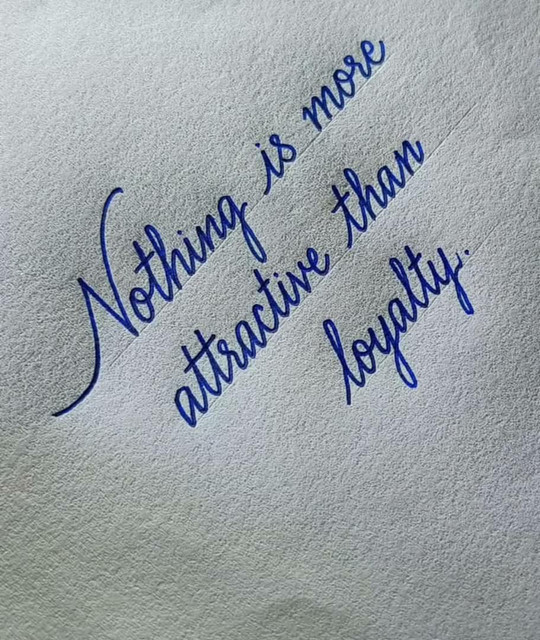 Nothing is more
attractive than
loyalty.